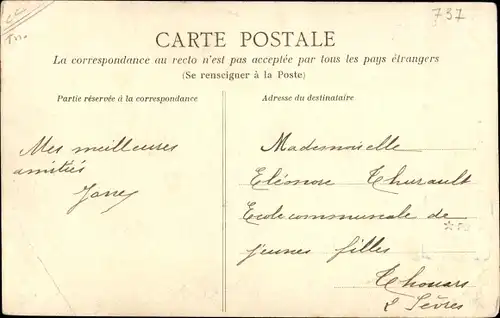 737
CARTE POSTALE
La correspondance au recto n'est pas acceptée par tous les pays étrangers
(Se renseigner à la Poste)
Partie réservée à la correspondance
Adresse du destinataire
Mes meilleures
amitiés
Mademoiselle
Eléonore Thurault
Ecole communale de
jeunes filles
Thouars
2 Sèvres